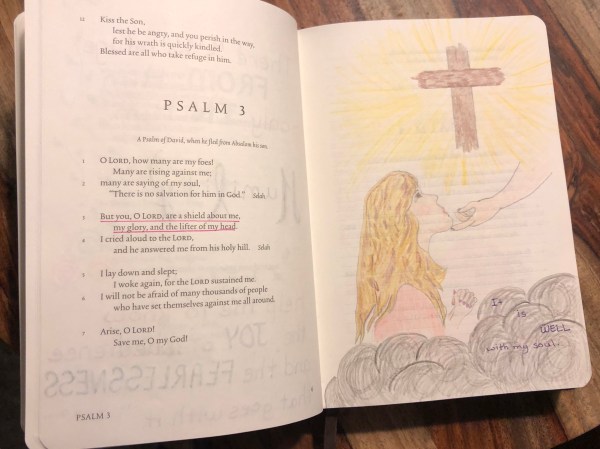 12 Kiss the Son,
lest he be angry, and you perish in the way,
for his wrath is quickly kindled.
Blessed are all who take refuge in him.
PSALM 3
A Psalm of David, when he fled from Absalom his son.
1 O LORD, how many are my foes!
Many are rising against me;
2 many are saying of my soul,
"There is no salvation for him in God." Selah
3 But you, O LORD, are a shield about me,
my glory, and the lifter of my head.
4 I cried aloud to the LORD,
and he answered me from his holy hill. Selah
5 I lay down and slept;
I woke again, for the LORD sustained me.
6 I will not be afraid of many thousands of people
who have set themselves against me all around.
7 Arise, O LORD!
Save me, O my God!
PSALM 3
It
is
WELL
with my soul.